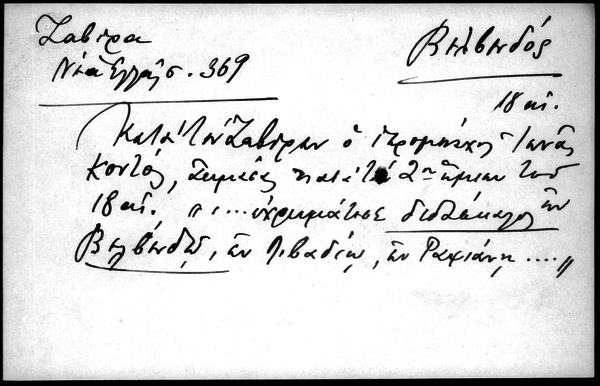 Ζαβίρα
Νέα Ἑλλάς σ. 369
Βελβενδός
18 αἰ.
Κατὰ τὸν Ζαβίραν ὁ ἱερομόναχος Ἰωνᾶς
Κοντός, ἀκμάσας κατὰ τὸ 2ον ἥμισυ τοῦ
18 αἰ. „ .... ἐχρημάτισε διδάσκαλος ἐν
Βελβενδῷ, ἐν Λιβαδίῳ, ἐν Ραψιάνῃ .... „